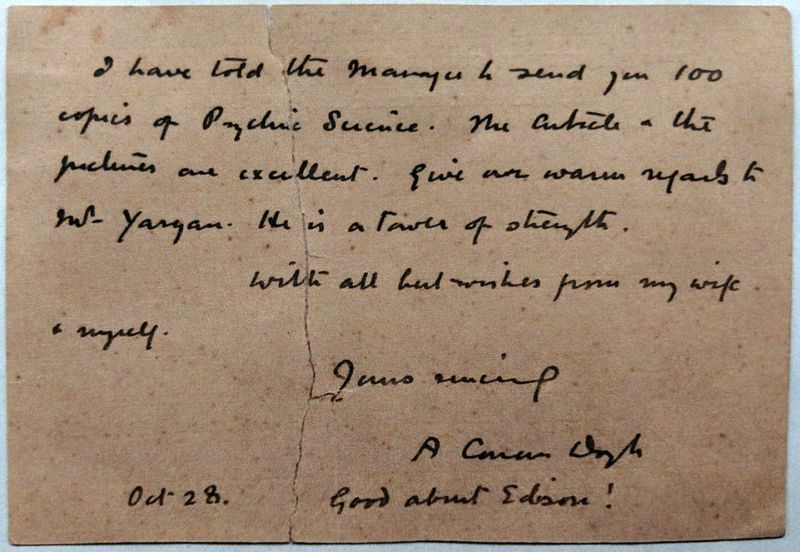 I have told the Manager to send you 100
copies of Psychic Science. The Article & the
pictures are excellent. Give our warm regards to
Mr Yargan. He is a tower of strength.
With all best wishes from my wife
& myself.
Yours sincerely
A Conan Doyle
Oct 28. Good about Edison!